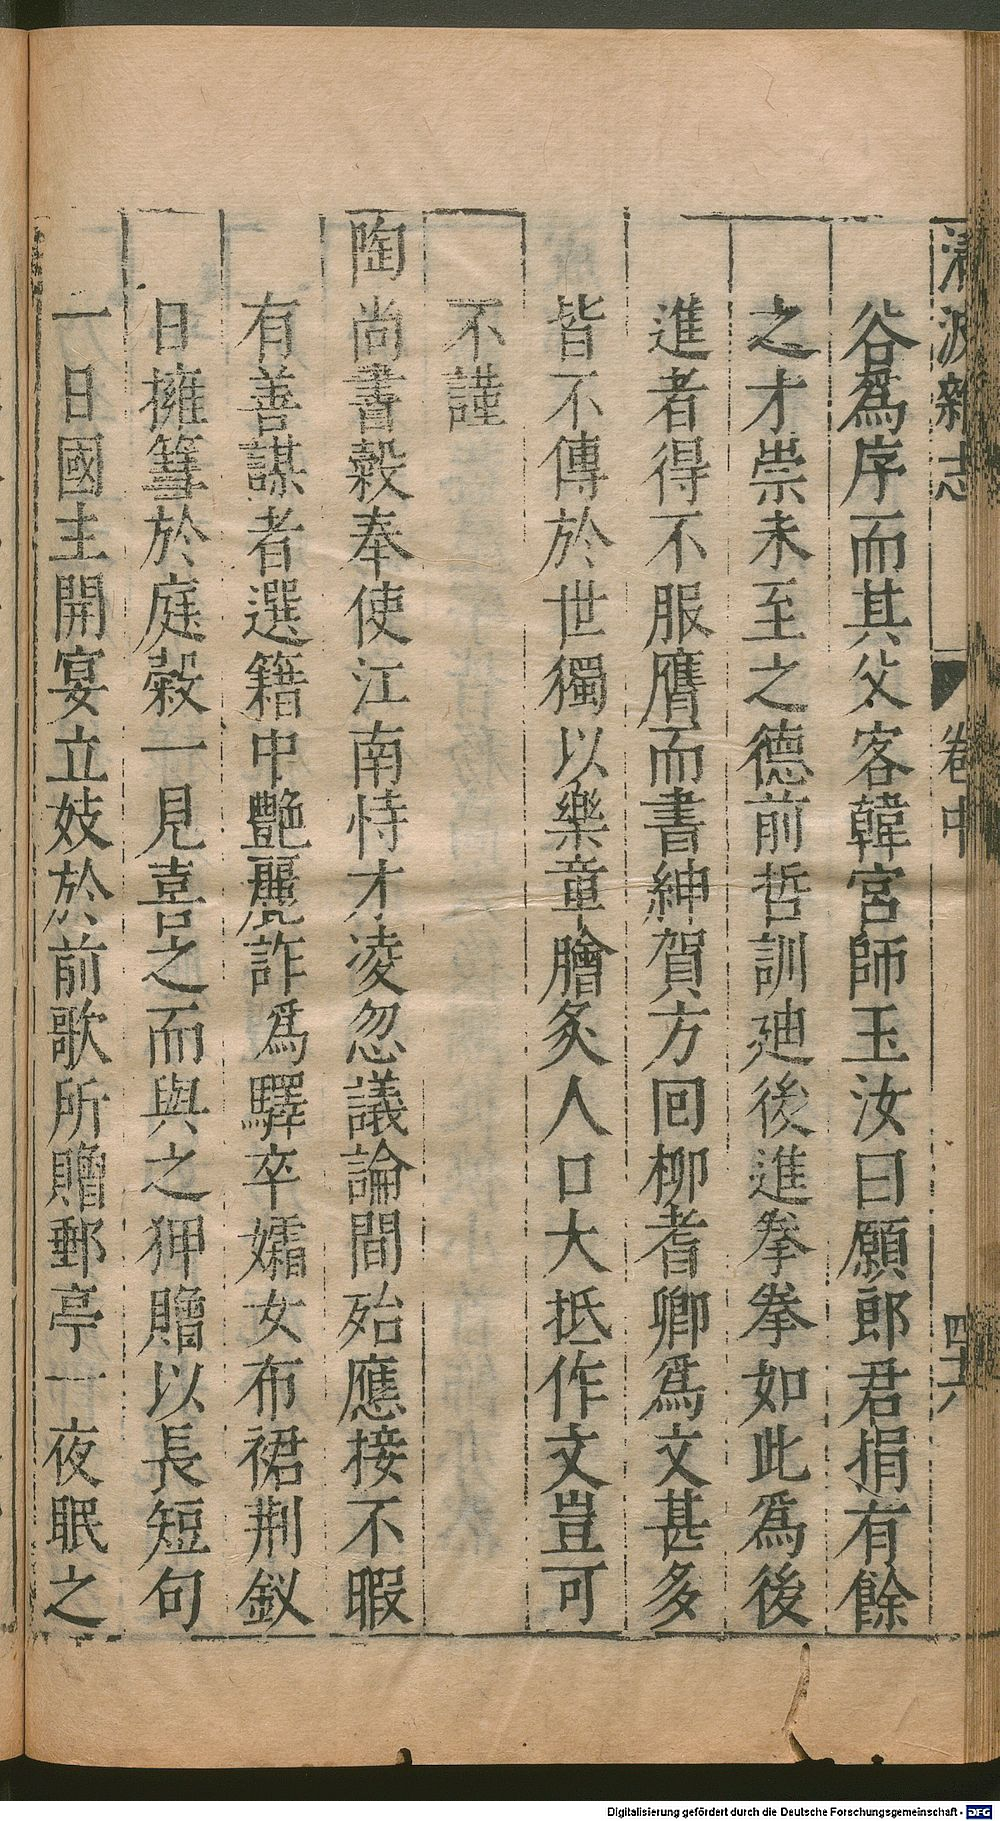 清波雜志 卷中 四十六
谷爲序而其父客韓宮師玉汝曰願郎君捐有餘
之才崇未至之德前哲訓廸後進拳拳如此爲後
進者得不服膺而書紳賀方回柳耆卿爲文甚多
皆不傳於世獨以樂章膾炙人口大抵作文豈可
不謹
陶尚書穀奉使江南恃才凌忽議論間殆應接不暇
有善謀者選籍中艷麗詐爲驛卒孀女布裙荆釵
日擁篲於庭穀一見喜之而與之狎贈以長短句
一日國主開宴立妓於前歌所贈郵亭一夜眠之
Digitalisierung gefördert durch die Deutsche Forschungsgemeinschaft - DFG